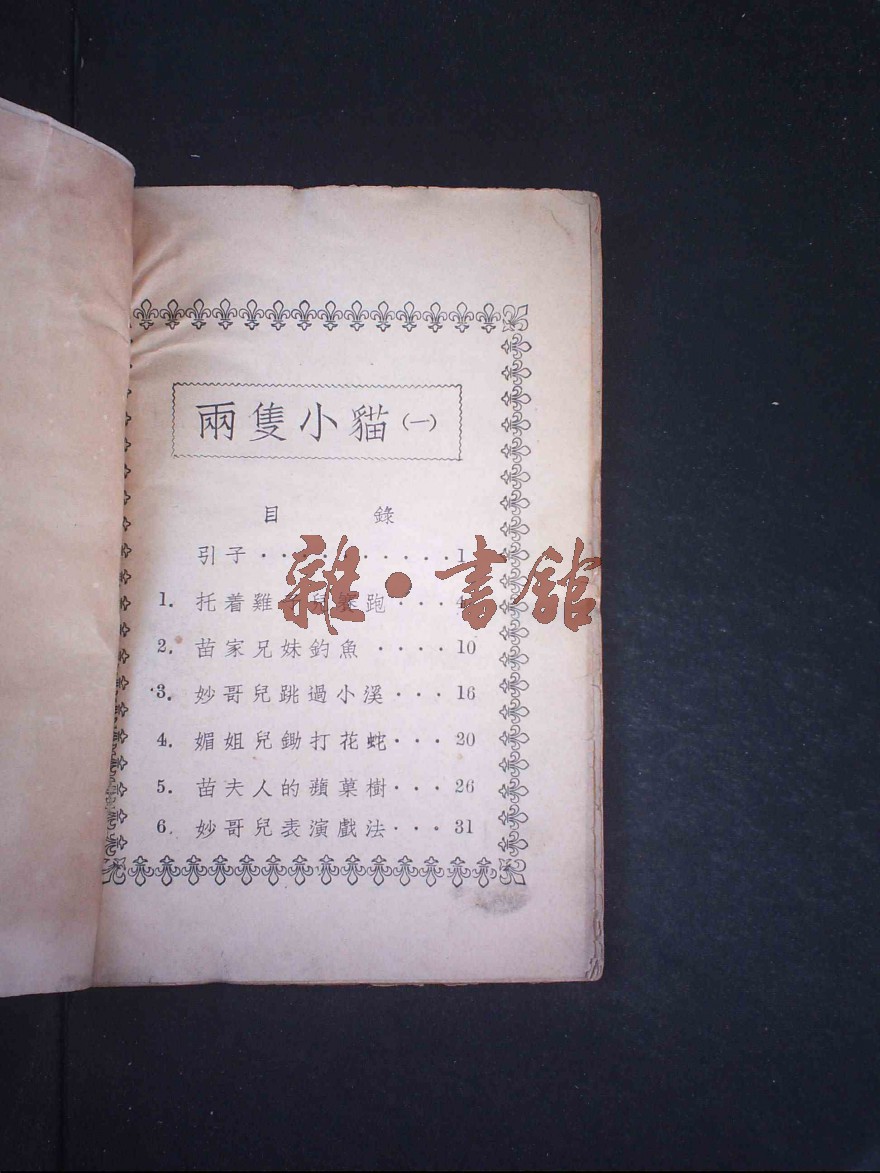 兩隻小貓(一)
目 錄
引子··········1
1. 托着雞子兒賽跑···4
2. 苗家兄妹釣魚····10
3. 妙哥兒跳過小溪···16
4. 媚姐兒鋤打花蛇···20
5. 苗夫人的蘋菓樹···26
6. 妙哥兒表演戲法···31
雜·書館